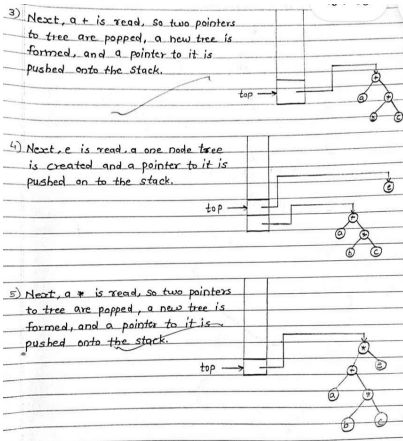 3) Next, a + is read, so two pointers
to tree are popped, a new tree is
formed, and a pointer to it is
pushed onto the stack.
top
+
a
+
c
4) Next, e is read, a one node tree
is created and a pointer to it is
pushed on to the stack.
e
top
+
a
+
b
c
5) Next, a * is read, so two pointers
to tree are popped, a new tree is
formed, and a pointer to it is
pushed onto the stack.
top
*
+
e
a
b
c